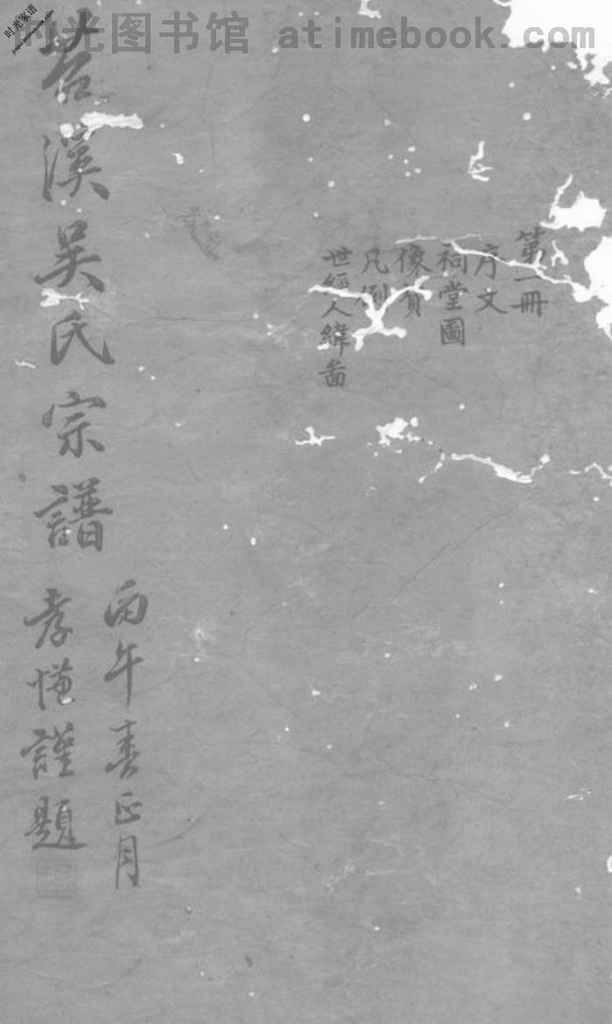 时光图书馆 atimebook.com
第一冊
序文
祠堂圖
像賛
凡例
世經人緯啚
丙午春正月
苕溪吴氏宗譜
孝慥謹題